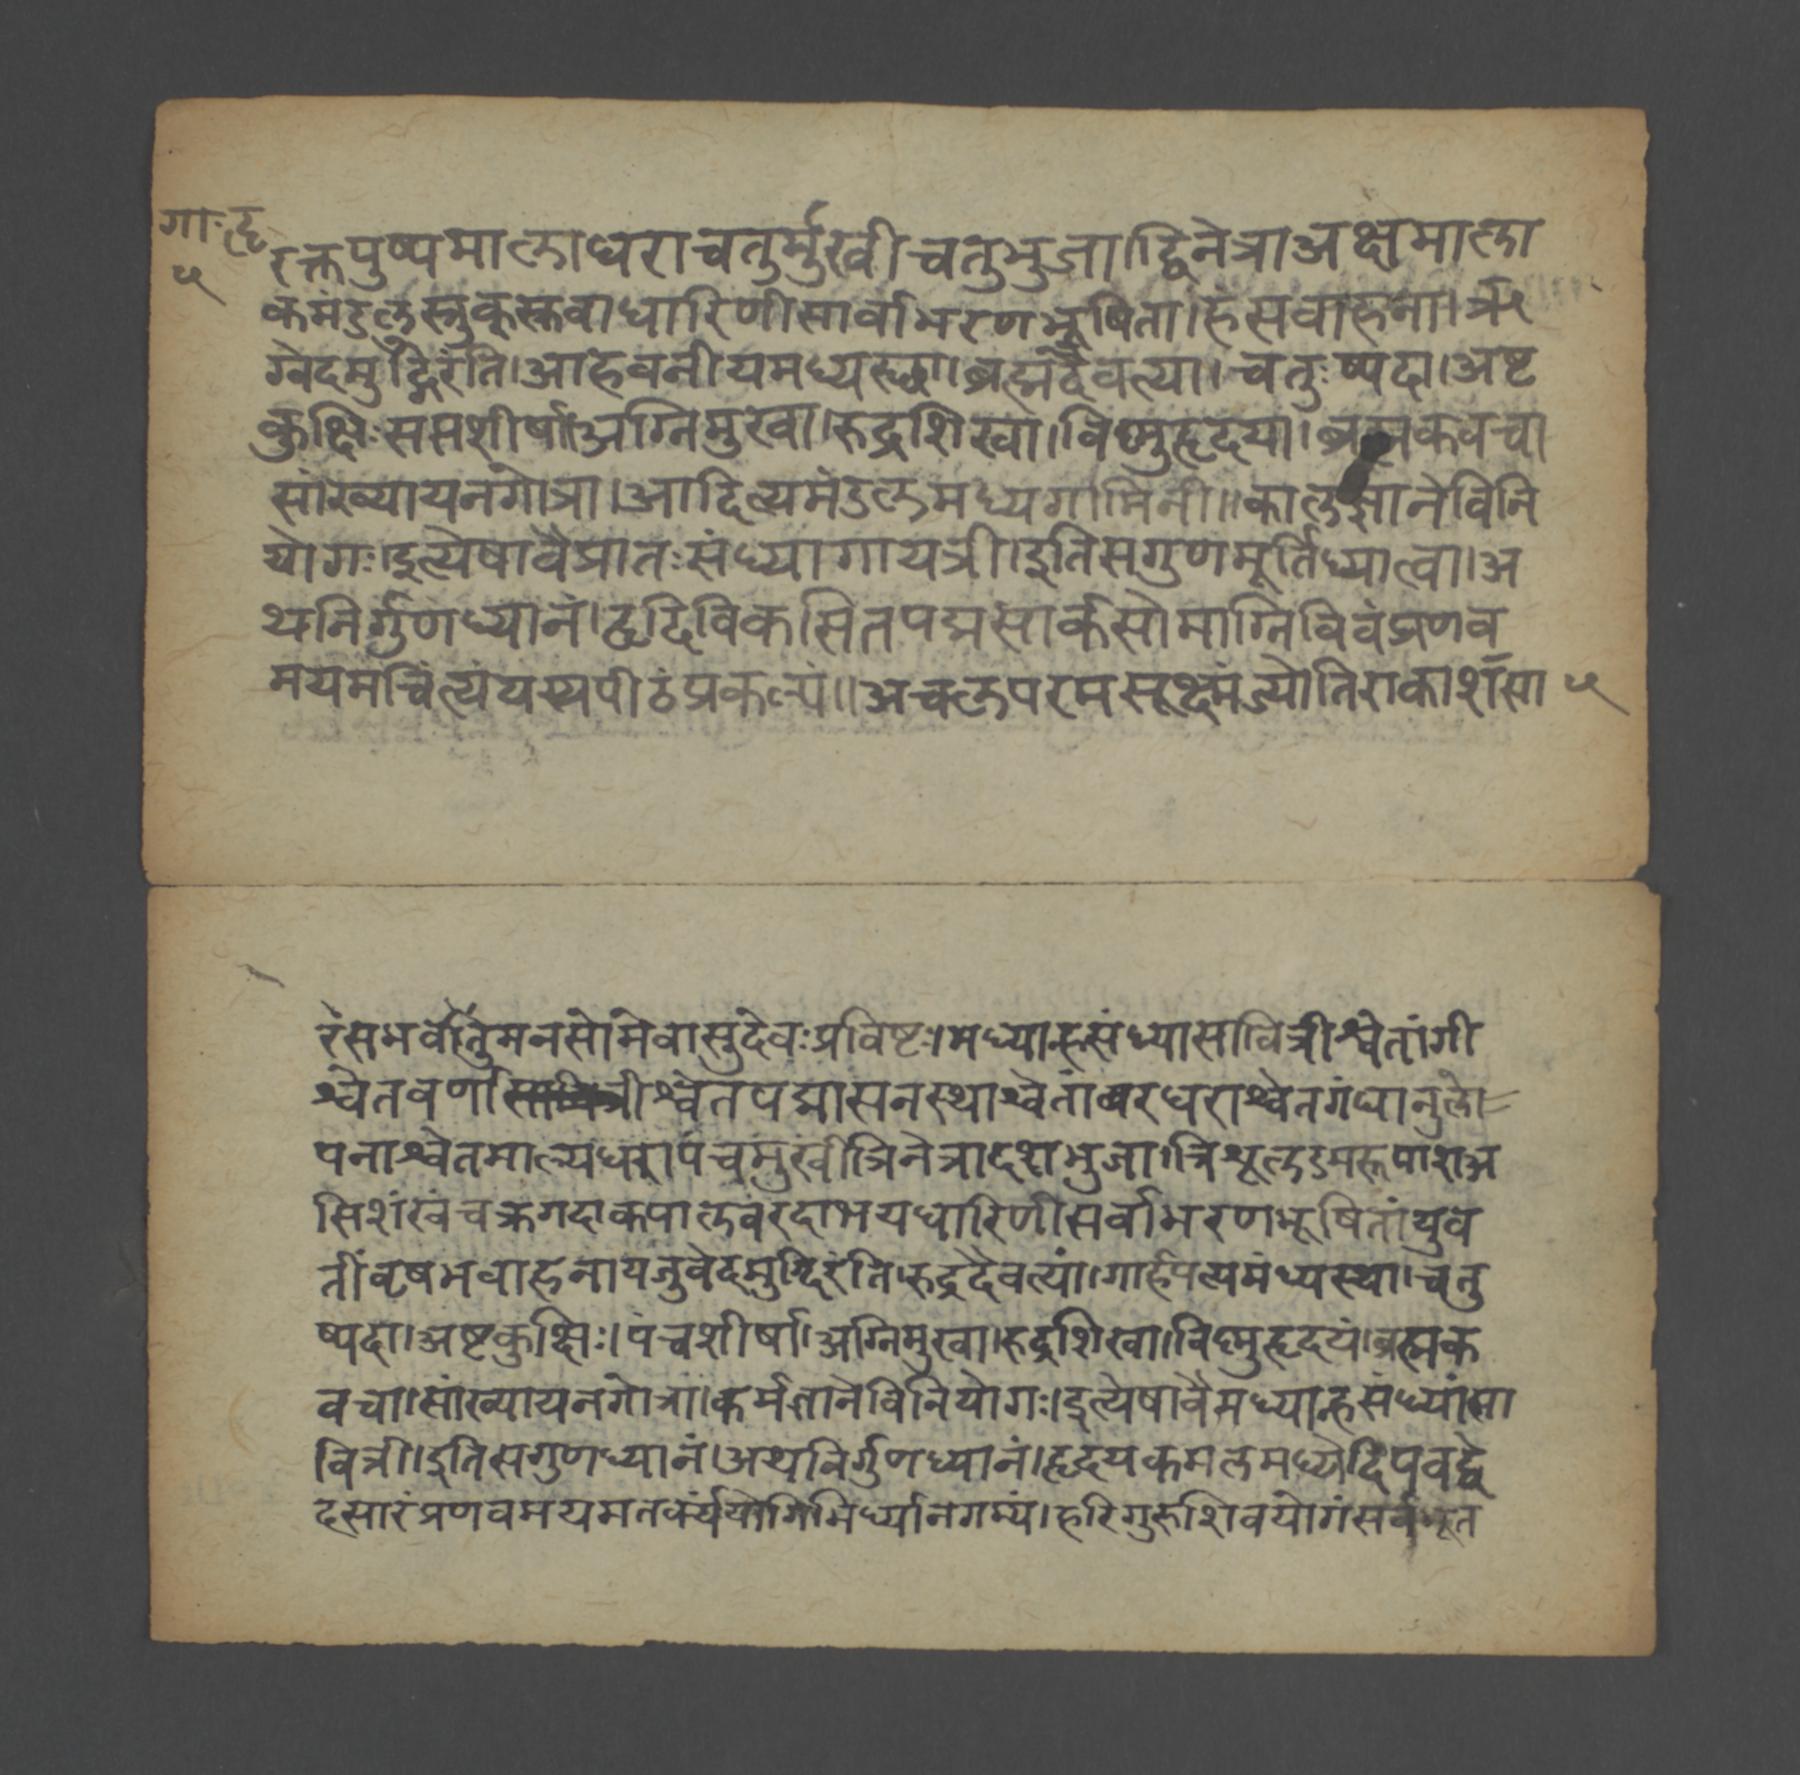 गाः हृ
५
रक्तपुष्पमालाधराचतुर्मुखीचतुभुजा।द्विनेत्राअक्षमाला
कमंडलुस्रुक्स्रुवाधारिणीसार्वाभरणभूषिता।हंसवाहना।ऋ
ग्वेदमुद्गिरंति।आहवनीयमध्यस्छा।ब्रह्मदैवत्या।चतुःष्पदा।अष्ट
कुक्षिःसप्तशीर्षा।अग्निमुखा।रुद्रशिखा।विष्णुहृदया।ब्रह्मकवचा
सांख्यायनगोत्रा।आदित्यमंडलमध्यगामिनी॥कालज्ञानेविनि
योगः।इत्येषावैप्रातःसंध्यागायत्री।इतिसगुणमूर्तिध्यात्वा।अ
थनिर्गुणध्यानं।हृदिविकसितपद्मसार्कसोमाग्निबिंबंप्रणव
मयमंचिंत्यंयस्यपीठंप्रकल्प्यं॥अचलपरमसूक्ष्मंज्योतिराकाशंसा ५
रंसभवेत्तुमनसोमेवासुदेवःप्रविष्टः।मध्यान्हसंध्यासावित्रीश्वेतांगी
श्वेतवर्णासावित्रीश्वेतपद्मासनस्थाश्वेतांबरधराश्वेतगंधानुले
पनाश्वेतमाल्यधरापंचमुखीत्रिनेत्रादशभुजा।त्रिशूलडमरूपाशअ
सिशंखचक्रगदाकपालवरदाभयधारिणीसर्वाभरणभूषितांयुव
तींवृषभवाहनायजुर्वेदमुद्गिरंति।रुद्रदैवत्यां।गार्हपत्यमंध्यस्था।चतु
ष्पदा।अष्टकुक्षिः।पंचशीर्षा।अग्निमुखा।रुद्रशिखा।विष्णुहृदयं।ब्रह्मक
वचा।सांख्यायनगोत्रा।कर्मज्ञानेविनियोगः।इत्येषावैमध्यान्हसंध्यांसा
वित्री।इतिसगुणध्यानं।अथनिर्गुणध्यानं।हृदयकमलमध्येदिपवद्वे
दसारंप्रणवमयमतर्क्यंयोगिभिर्ध्यानगम्यं।हरिगुरुशिवयोगंसर्वभूत